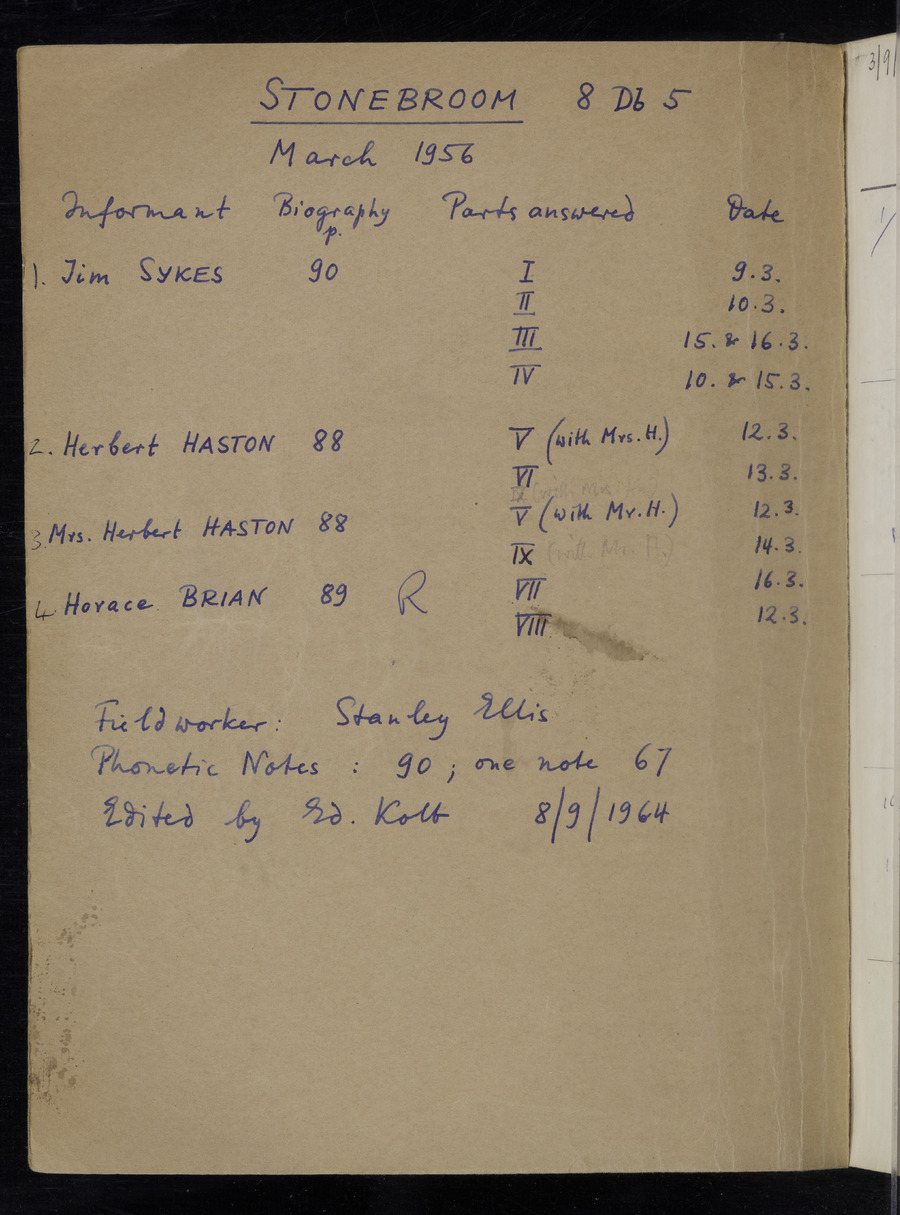 STONEBROOM 8 Db 5
March 1956
Informant Biography p. Parts answered Date
1. Jim SYKES 90 I 9.3.
II 10.3.
III 15. & 16.3.
IV 10. & 15.3.
2. Herbert HASTON 88 V (with Mrs. H.) 12.3.
VI 13.3.
IX (with Mrs.
3. Mrs. Herbert HASTON 88 V (with Mr. H.) 12.3.
IX (with Mr. H.) 14.3.
4 Horace BRIAN 89 R VII 16.3.
VIII 12.3.
Fieldworker: Stanley Ellis
Phonetic Notes : 90 ; one note 67
Edited by Ed. Kolb 8/9/1964
3/9/